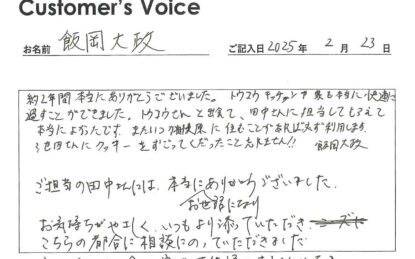 Customer's Voice
お名前 飯岡大政 ご記入日 2025年 2月 23日
約2年間本当にありがとうございました。トウコウキッチンや裏も本当に快適に
過すことができました。トウコウさんと出会て、田中さんに担当してもらえて
本当によかったです。またいつか相模原に住むことがあれば必ず利用します。
池田さんにクッキーをすごってくだったこと忘れません!! 飯岡大政
ご担当の田中さんには、本当にありがとうございました。
お世話になり
お気持ちがやさしく、いつもより添っていただき
こちらの都合に相談にのっていただきました